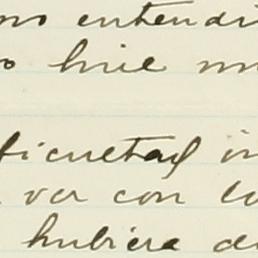 no entendi
hice
ficultad in
ver con lo
hubiera de